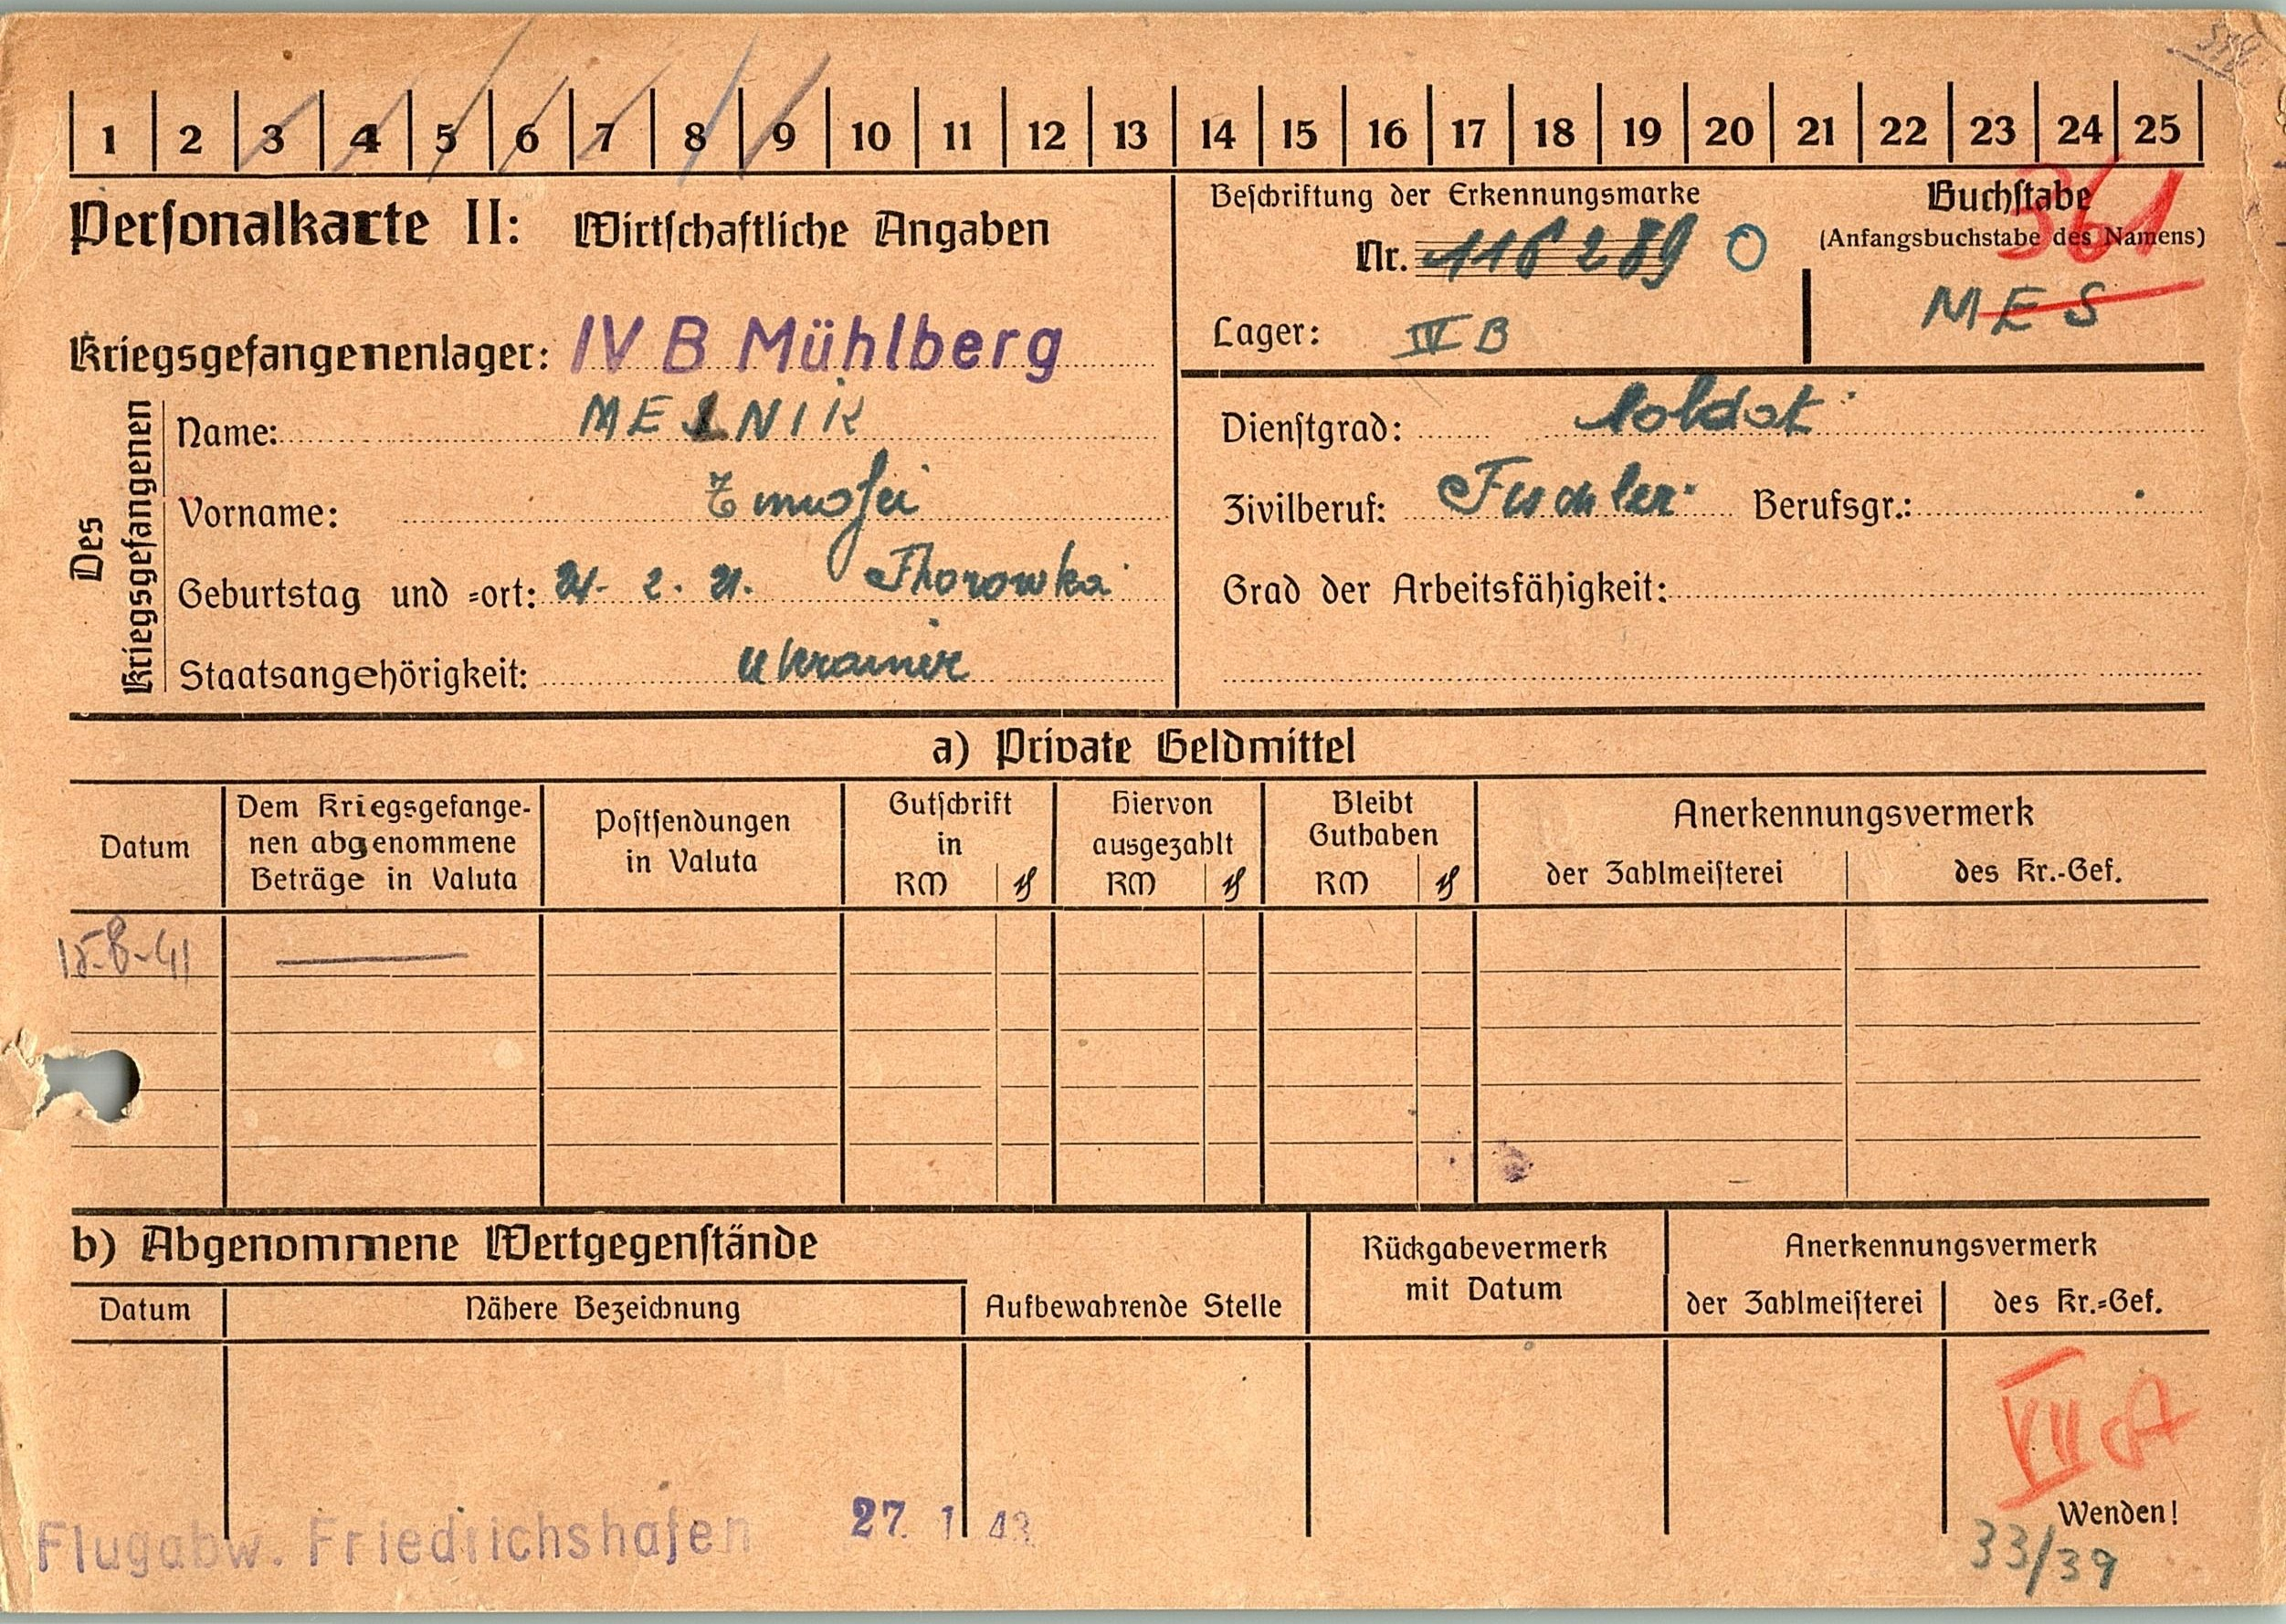 1 2 3 4 5 6 7 8 9 10 11 12 13 14 15 16 17 18 19 20 21 22 23 24 25
Personalkarte II: Wirtschaftliche Angaben
Beschriftung der Erkennungsmarke
Nr. 116289
Lager: IV B
Buchstabe
(Anfangsbuchstabe des Namens)
361
MES
Kriegsgefangenenlager: IV B Mühlberg
Des Kriegsgefangenen
Name: MELNIK
Vorname:
Geburtstag und =ort: 2. 21. Thorowka
Staatsangehörigkeit: Ukrainer
Dienstgrad: Soldat
Zivilberuf: Tischler Berufsgr.:
Grad der Arbeitsfähigkeit:
a) Private Geldmittel
Datum
Dem Kriegsgefange-
nen abgenommene
Beträge in Valuta
Postsendungen
in Valuta
Gutschrift
in
RM ₰
Hiervon
ausgezahlt
RM ₰
Bleibt
Guthaben
RM ₰
Anerkennungsvermerk
der Zahlmeisterei
des Kr.-Gef.
15-8-41
b) Abgenommene Wertgegenstände
Datum
Nähere Bezeichnung
Aufbewahrende Stelle
Rückgabevermerk
mit Datum
Anerkennungsvermerk
der Zahlmeisterei
des Kr.=Gef.
VII A
Wenden!
Flugabw. Friedrichshafen 27. 1 43
33/39